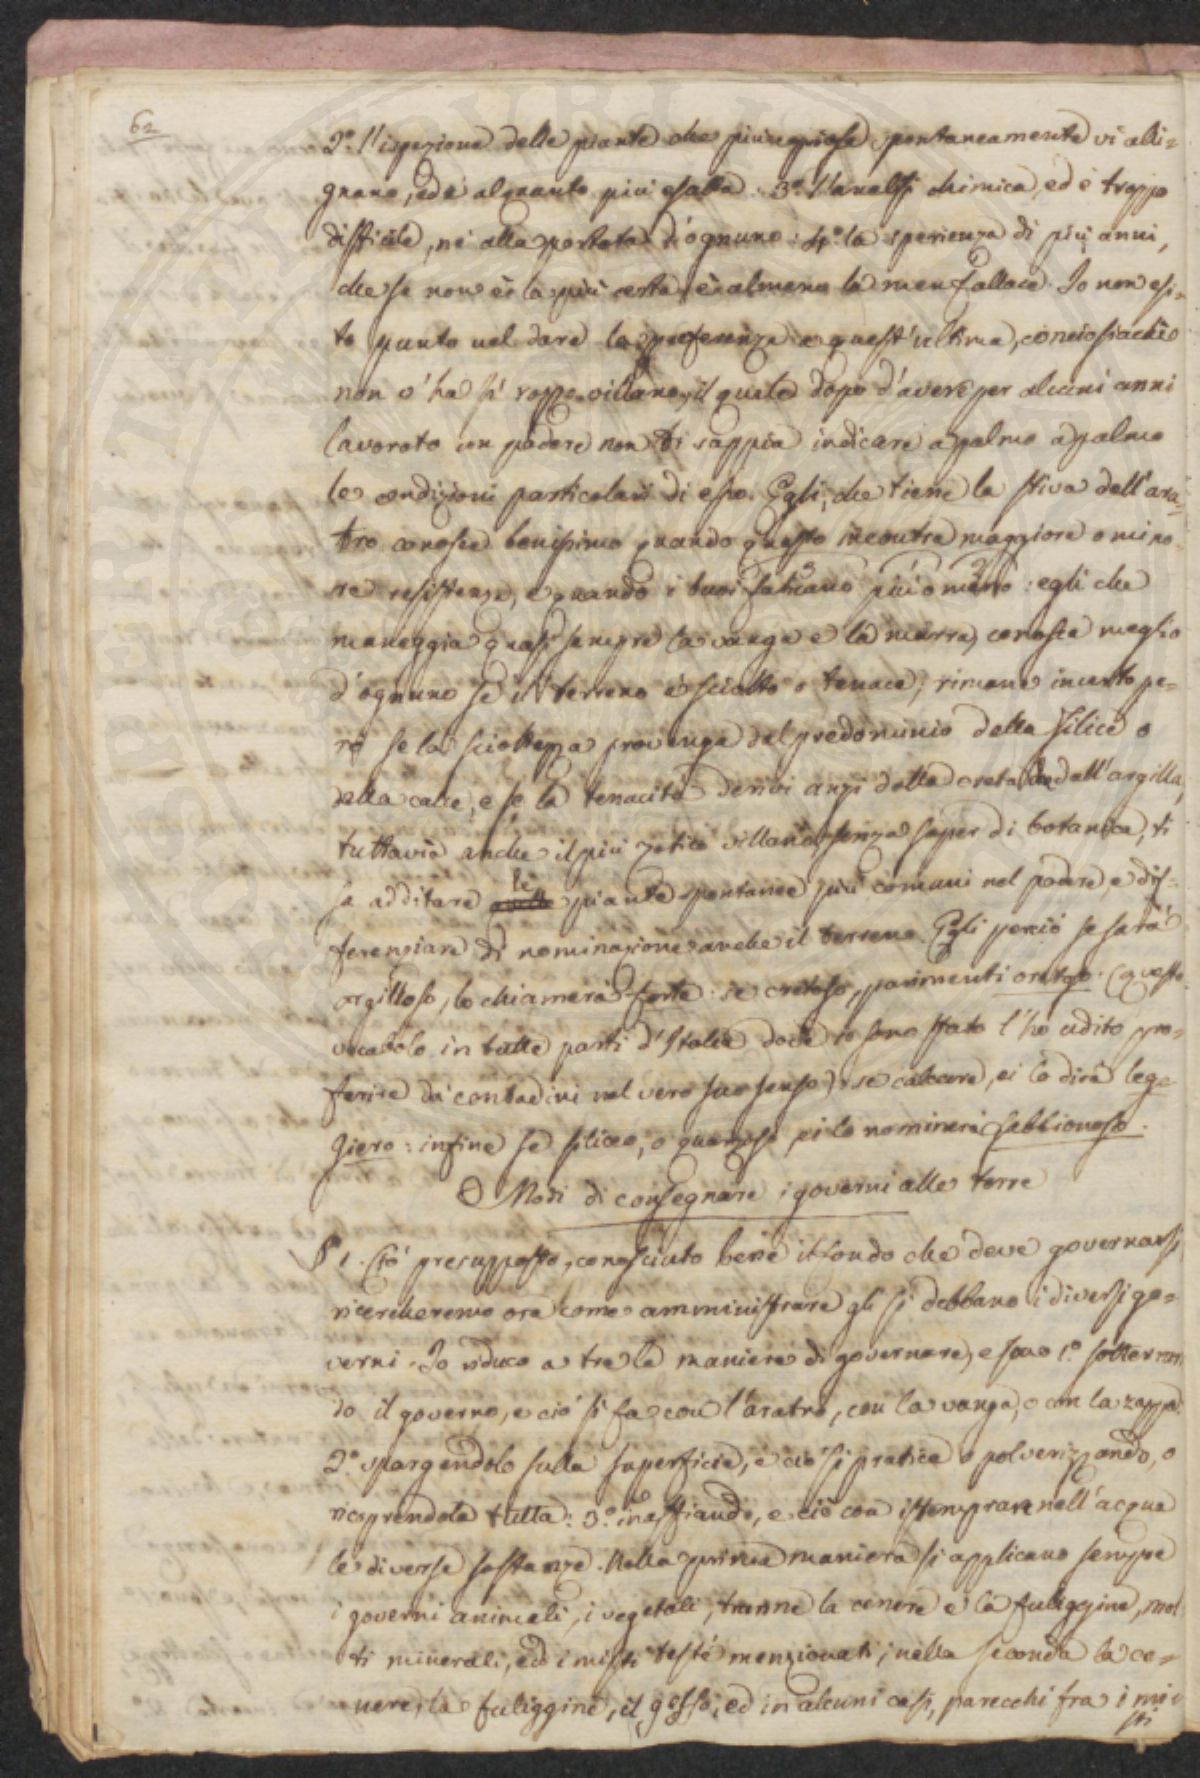 62
2.° l'ispezione delle piante che più copiose spontaneamente vi alli-
gnano, ed è alquanto più esatta: 3.° l'analisi chimica, ed è troppo
difficile, nè alla portata d'ognuno: 4.° la sperienza di più anni,
che se non è la più certa è almeno la men fallace. Io non esi-
to punto nel dare la preferenza a quest'ultima, conciosiachè
non v'ha sì rozzo villano, il quale dopo d'avere per alcuni anni
lavorato un podere non ti sappia indicare a palmo a palmo
le condizioni particolari di esso. Egli, che tiene la stiva dell'ara-
tro conosce benissimo quando questo incontra maggiore o mino-
re resistenza, e quando i buoi faticano più o meno: egli che
maneggia quasi sempre la vanga e la marra, conosce meglio
d'ognuno se il terreno è sciolto o tenace; rimane incerto pe-
rò se la scioltezza provenga dal predominio della silice o
della calce, e se la tenacità derivi anzi dalla creta, che dall'argilla,
tuttavia anche il più zotico villano senza saper di botanica, ti
sa additare le piante spontanee più comuni nel podere, e dif-
ferenziare di nominazione anche il terreno. Egli perciò se sarà
argilloso, lo chiamerà forte: se cretoso, parimenti cretoso (questo
vocabolo in tutte parti d'Italia dove io sono stato l'ho udito pro-
ferire da' contadini nel vero suo senso): se calcare, ei lo dirà leg-
giero: infine se siliceo, o quarzoso ei lo nominerà sabbionoso.
Modi di consegnare i governi alle terre
§ 1. Ciò presupposto, conosciuto bene il fondo che deve governarsi,
ricercheremo ora come amministrare gli si debbano i diversi go-
verni. Io riduco a tre le maniere di governare, e sono 1.° sotterran-
do il governo, e ciò si fa con l'aratro, con la vanga, e con la zappa:
2.° spargendolo sulla superficie, e ciò si pratica o polverizzando, o
ricoprendola tutta: 3.° inaffiando, e ciò con istemprare nell'acqua
le diverse sostanze. Nella prima maniera si applicano sempre
i governi animali, i vegetali, tranne la cenere e la fuliggine, mol
ti minerali, ed i misti testè menzionati; nella seconda la ce-
nere, la fuliggine, il gesso, ed in alcuni casi, parecchi fra i mi-
sti